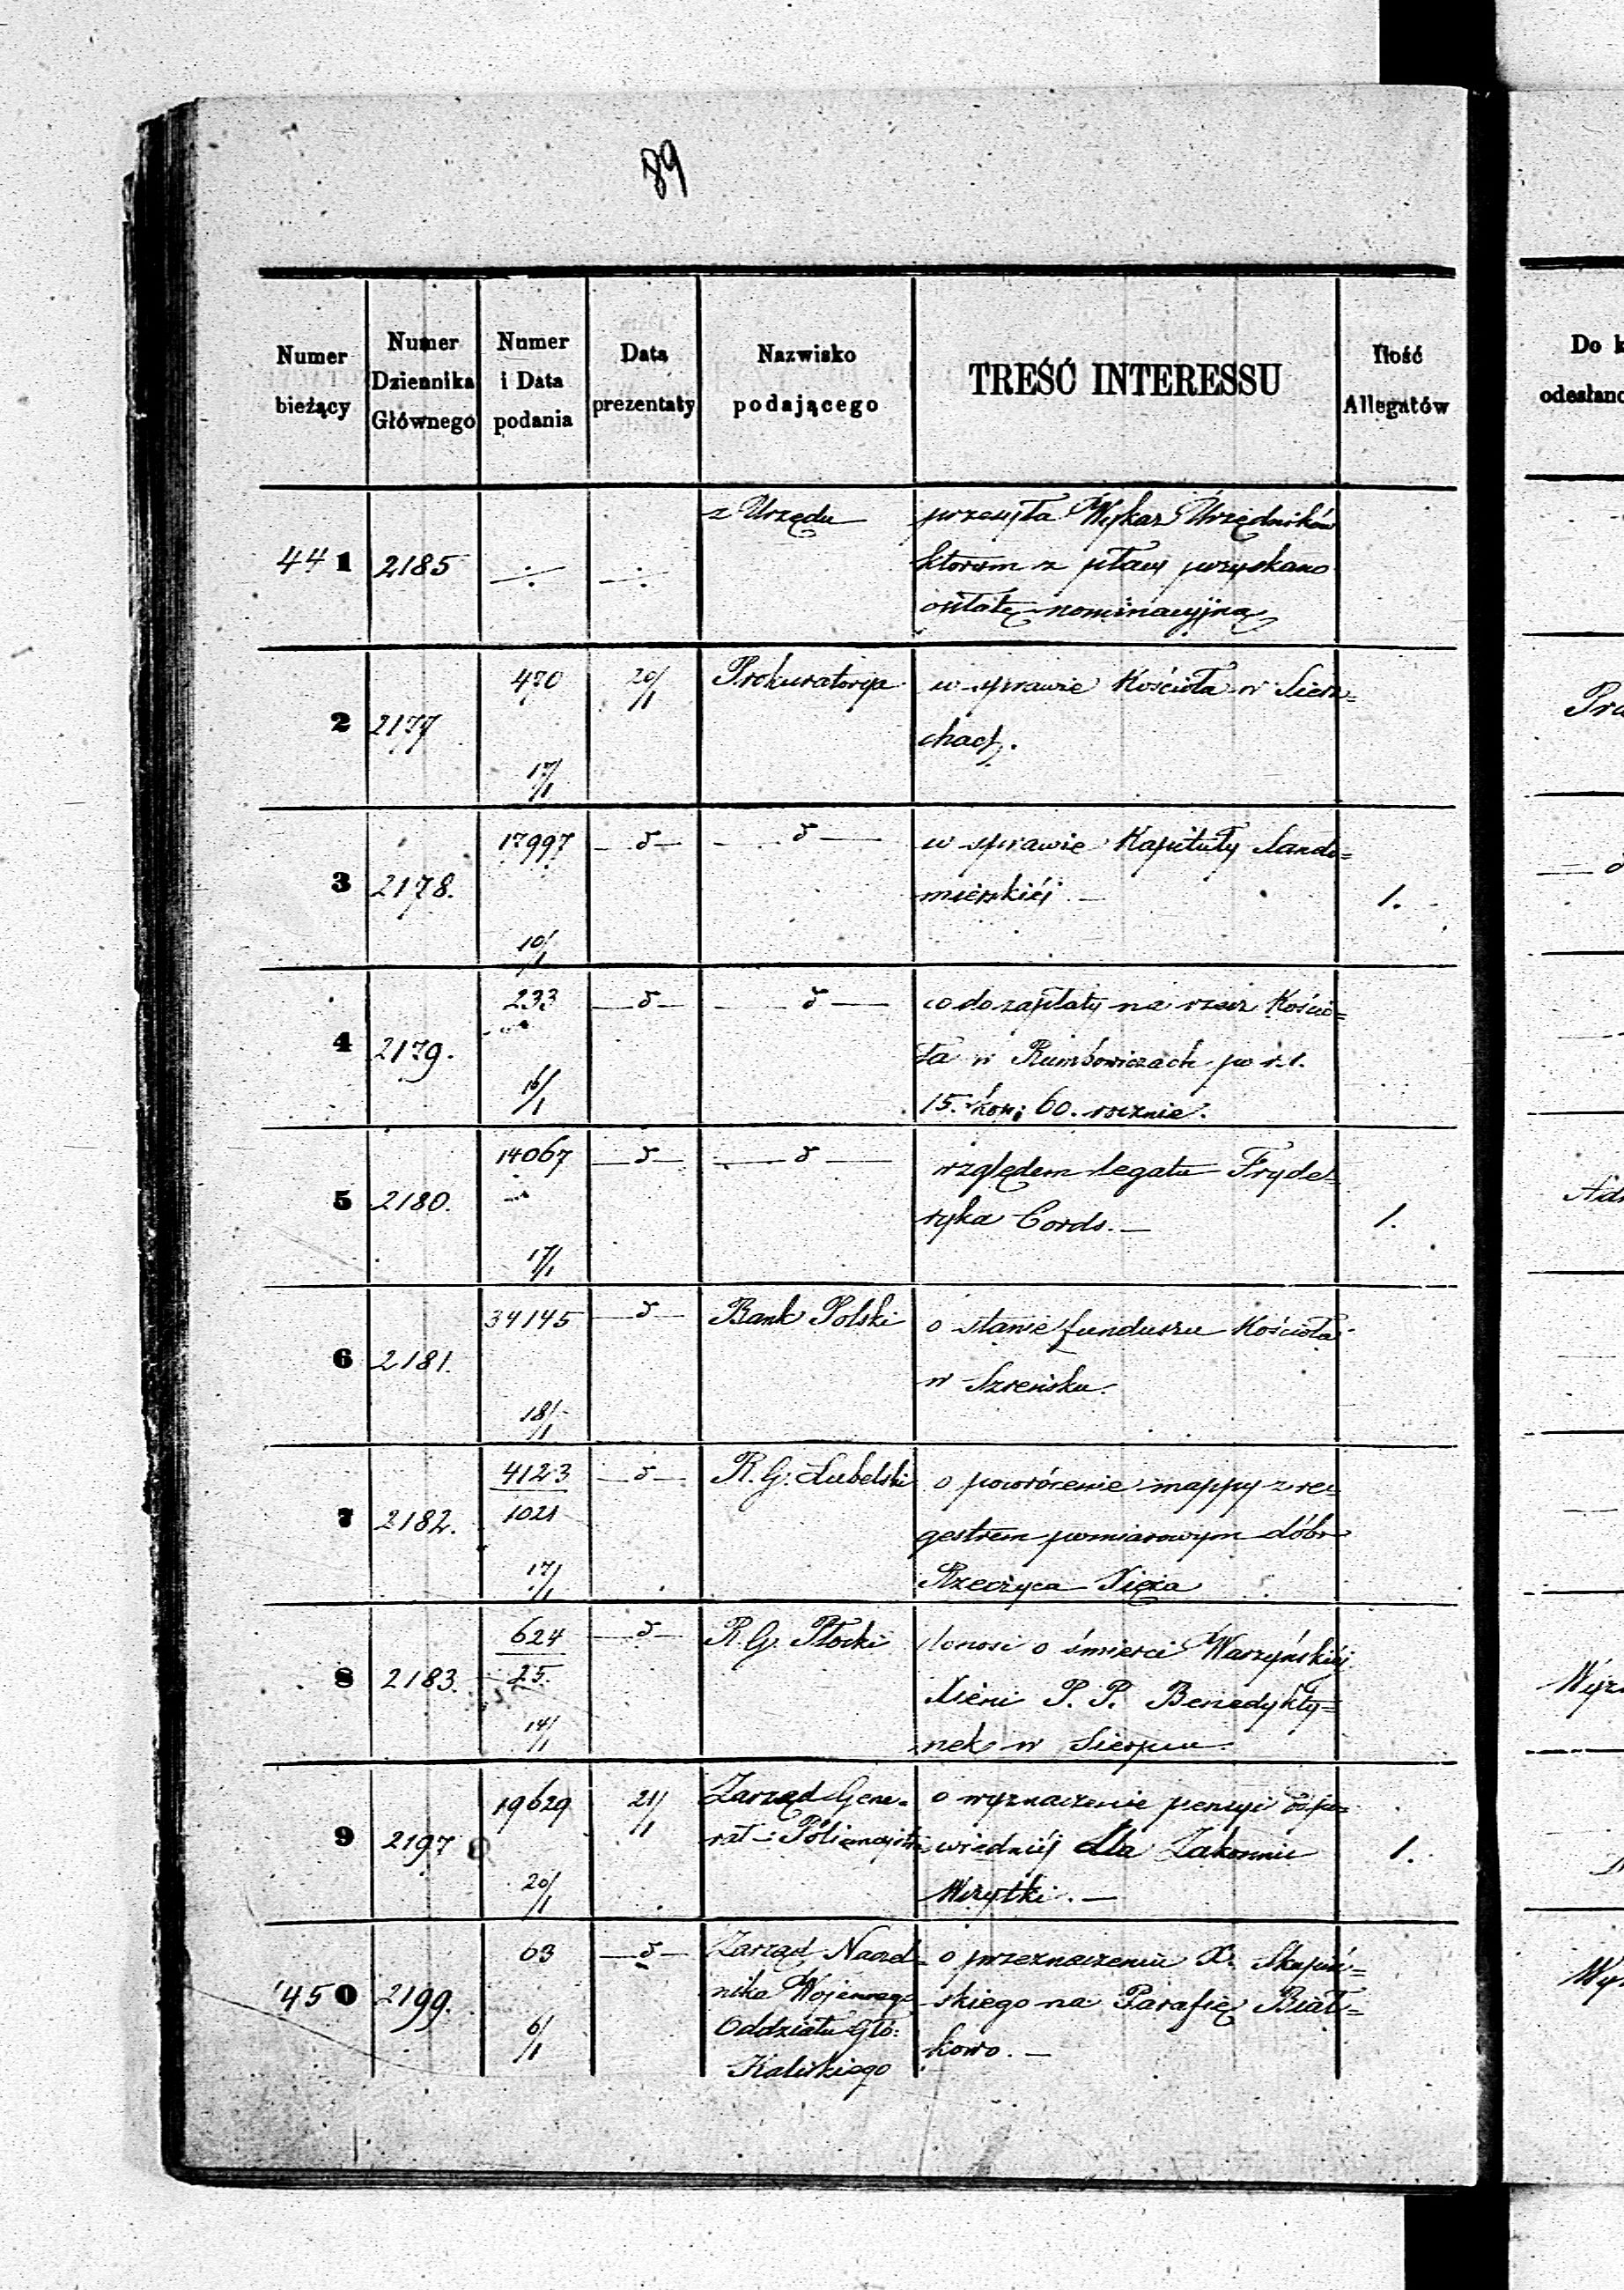 89
Numer bieżący
Numer Dziennika Głównego
Numer i Data podania
Data prezentaty
Nazwisko podającego
TREŚĆ INTERESSU
Ilość Allegatów
Do k
odesłano
441 2185 ÷ ÷ z Urzędu przesyła Wykaz Urzędników
którym z płacy pozyskano
opłatę nominacyjną
2 2177 470 17/1 20/1 Prokuratorya w sprawie Kościoła w
chach.
Pro
3 2178. 17997 10/1 —δ— —δ— w sprawie Kapituły Sando=
mierskiéj. — 1.
4 2179. 233 16/1 —δ— —δ— co do zapłaty na rzecz Kościo=
ła w po r. s.
15. kop: 60. rocznie.
5 2180. 14067 17/1 —δ— —δ— względem legatu Fryde=
ryka Cords. — 1.
6 2181. 34145 18/1 —δ— Bank Polski o stanie funduszu Kościoła
w Szreńsku.
7 2182. 4123/1021 17/1 —δ— R. G. Lubelski o powrócenie mappy z re=
gestrem pomiarowym dóbr
Rzeczyca Xięża
8 2183. 624/25. 14/1 —δ— R. G. Płocki donosi o śmierci Warzyńskiéj
Xieni P. P. Benedykty=
nek w Sierpcu
9 2197 19629 20/1 21/1 Zarząd Gene=
rał-Policmajstr o wyznaczenie pensyi odpo=
wiedniéj dla Zakonnic
Wizytki. — 1.
450 2199. 63 6/1 —δ— Zarząd Naczel
nika Wojennego
Oddziału Głó:
Kaliskiego
o przeznaczeniu X.
skiego na Parafię Biał=
kowo. —